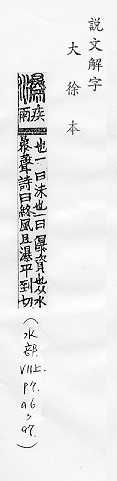 説文解字
大徐本
瀑疾雨
也一曰沫也一曰瀑資也从水
暴聲詩曰終風且瀑平到切
(水部. VII上. p7. a6, a7.)